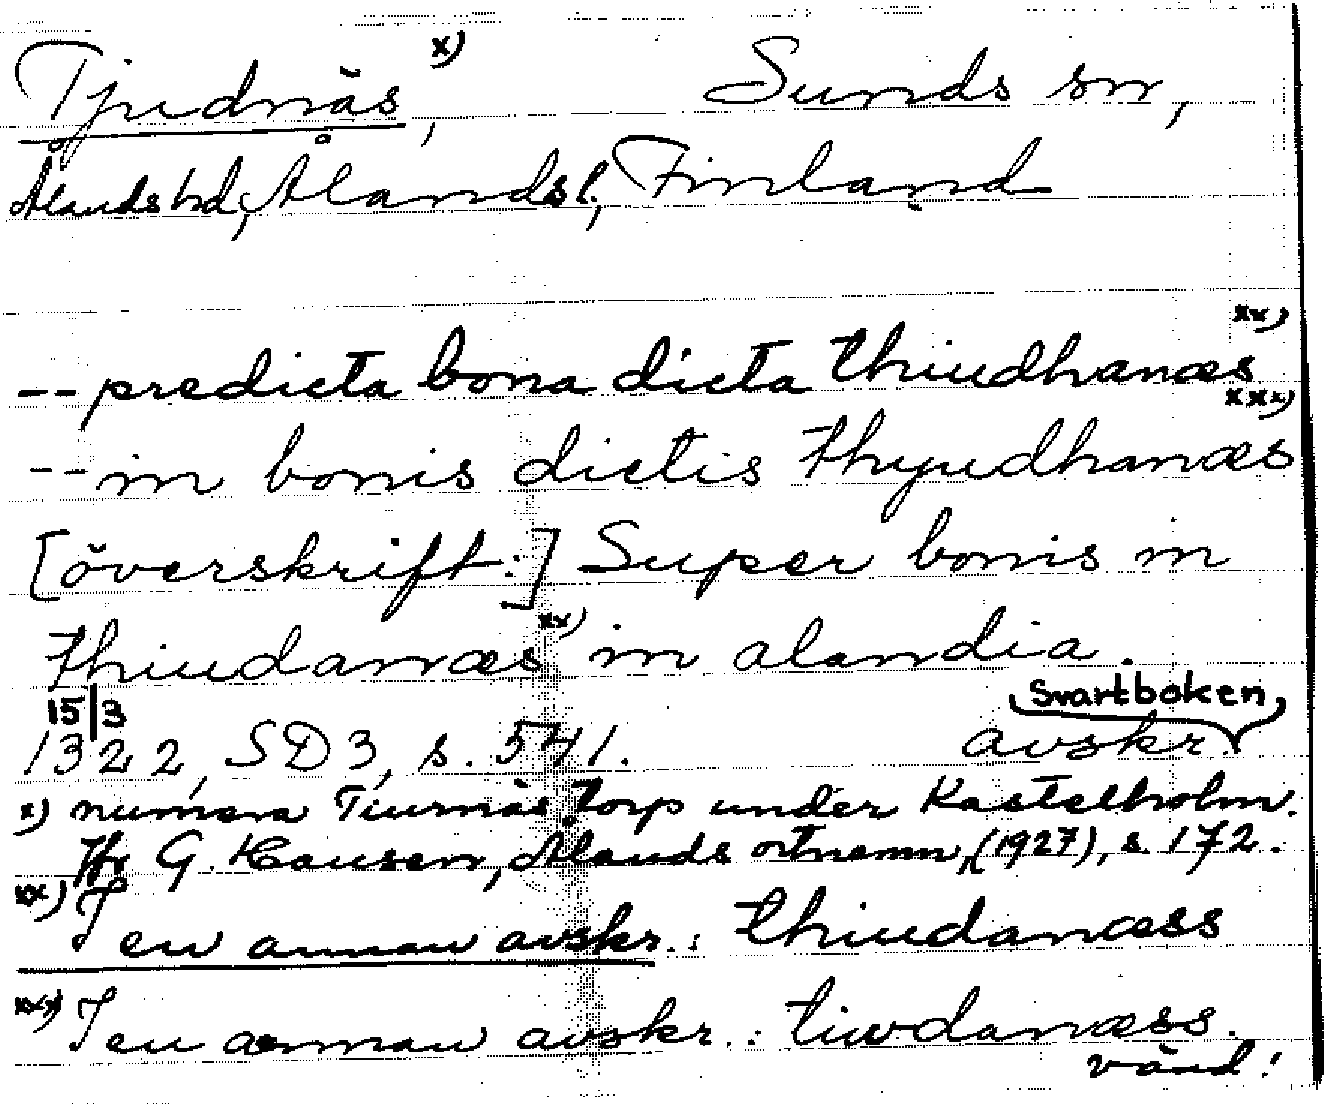 Tjudnäs, x) Sunds sn,
Ålands hd, Ålands l., Finland
-- predicta bona dicta thiudhanæs xx)
-- in bonis dictis thyudhanæs xxx)
[överskrift:] Super bonis in
thiudanæs xx) in alandia.
15/3
1322, SD 3, s. 541. Svartboken avskr.
x) numera Tiurnäs, torp under Kastelholm.
Jfr G. Hausen, Ålands ortnamn, (1927), s. 172.
xx) I en annan avskr.: thiudanæss
xxx) I en annan avskr.: tiwdanæss.
vänd!